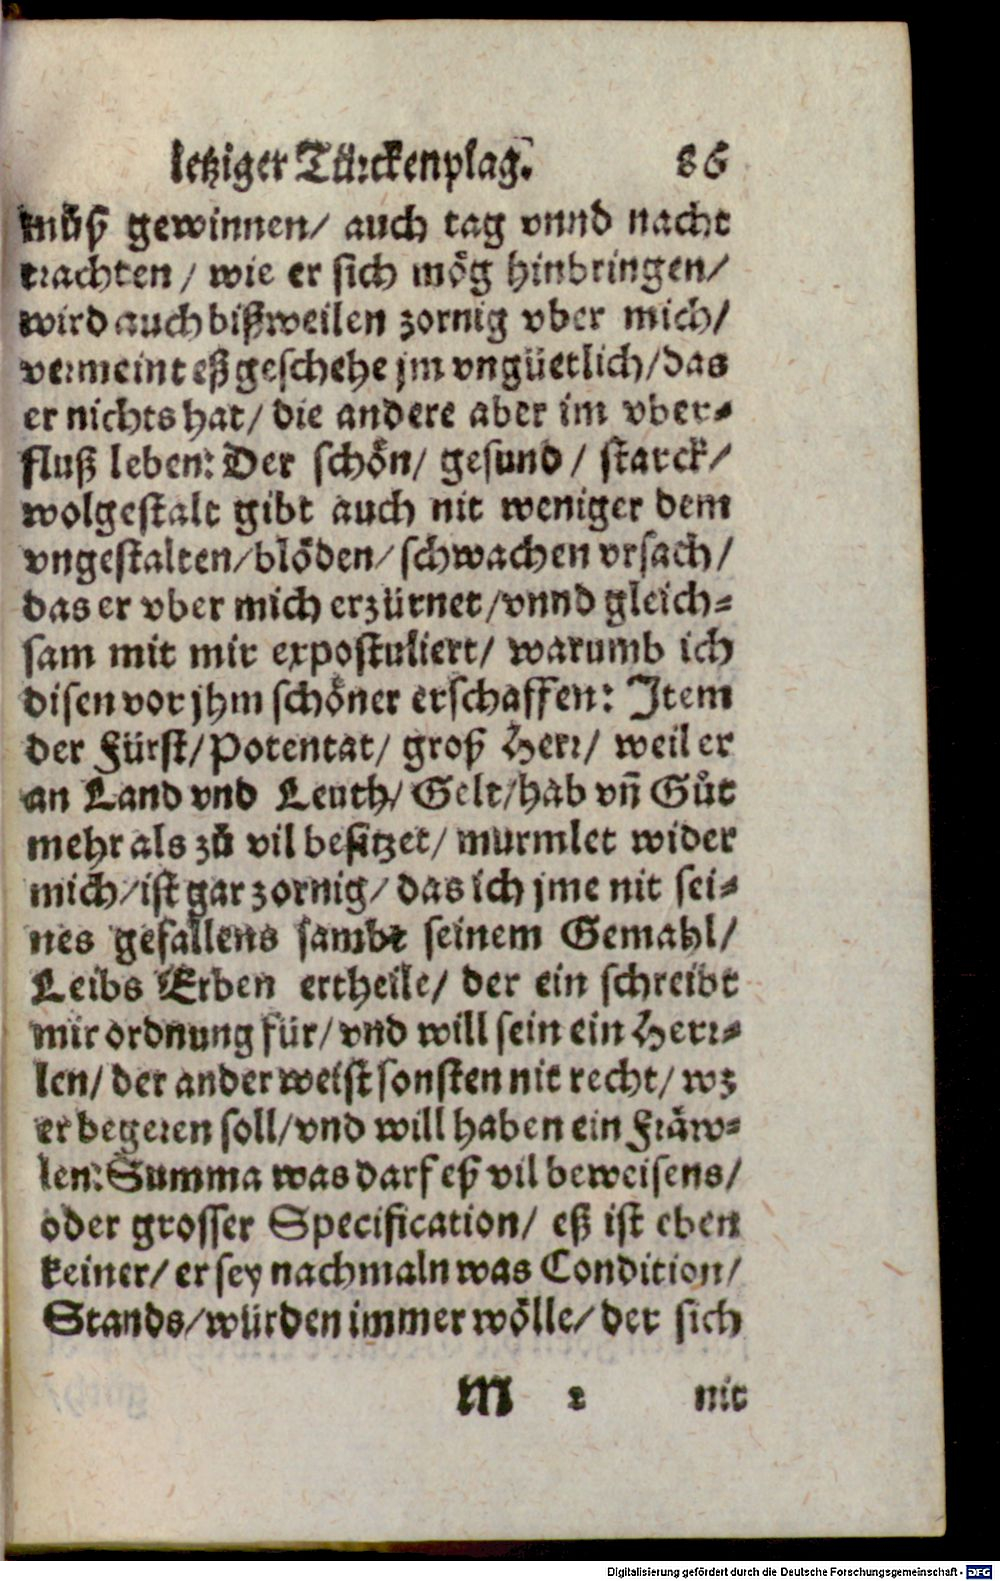 letziger Türckenplag. 86
můß gewinnen/ auch tag vnnd nacht
trachten/ wie er sich mög hinbringen/
wird auch bißweilen zornig vber mich/
vermeint eß geschehe jm vngüetlich/ das
er nichts hat/ die andere aber im vber⸗
fluß leben: Der schön/ gesund/ starck/
wolgestalt gibt auch nit weniger dem
vngestalten/ blöden/ schwachen vrsach/
das er vber mich erzürnet/ vnnd gleich⸗
sam mit mir expostuliert/ warumb ich
disen vor jhm schöner erschaffen: Item
der Fürst/ Potentat/ groß Herr/ weil er
an Land vnd Leuth/ Gelt/ hab vñ Gůt
mehr als zů vil besitzet/ murmlet wider
mich/ ist gar zornig/ das ich jme nit sei⸗
nes gefallens sambt seinem Gemahl/
Leibs Erben ertheile/ der ein schreibt
mir ordnung für/ vnd will sein ein Herr⸗
len/ der ander weist sonsten nit recht/ wz
er begeren soll/ vnd will haben ein Fräw⸗
len: Summa was darf eß vil beweisens/
oder grosser Specification/ eß ist eben
keiner/ er sey nachmaln was Condition/
Stands/ würden immer wölle/ der sich
M 2 nit
Digitalisierung gefördert durch die Deutsche Forschungsgemeinschaft - DFG